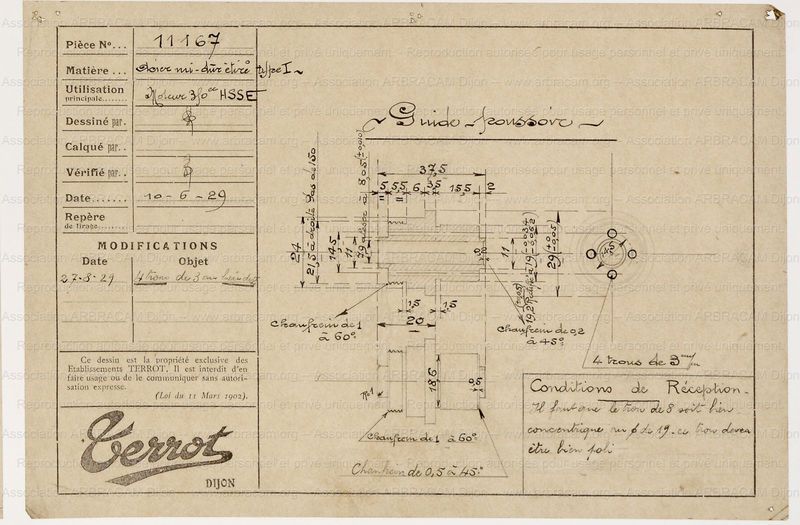 Pièce No... 11167
Matière ... Acier mi-dur étiré type I
Utilisation
principale........ Moteur 350cc HSSE
Dessiné par.
Calqué par..
Vérifié par..
Date....... 10-6-29
Repère
de tirage........
MODIFICATIONS
Date Objet
27-8-29 4 trous de 3 au lieu de
Ce dessin est la propriété exclusive des
Etablissements TERROT. Il est interdit d'en
faire usage ou de le communiquer sans autori-
sation expresse.
(Loi du 11 Mars 1902).
Terrot
DIJON
Guide poussoir
37,5
5 5,5 6 3,5 15,5 2
24
21,5 à droite pas de 150
14,5
11
11
29
1,5
1,5
20
Chanfrein de 1
à 60°
Chanfrein de 0,2
à 45°
4 trous de 3 m/m
18,6
0,5
N°1
Chanfrein de 1 à 60°
Chanfrein de 0,5 à 45°
Conditions de Réception.
Il faut que le trou de 8 soit bien
concentrique au ϕ de 19. ce trou devra
être bien poli
Association ARBRACAM Dijon - www.arbracam.org
Reproduction autorisée pour usage personnel et privé uniquement